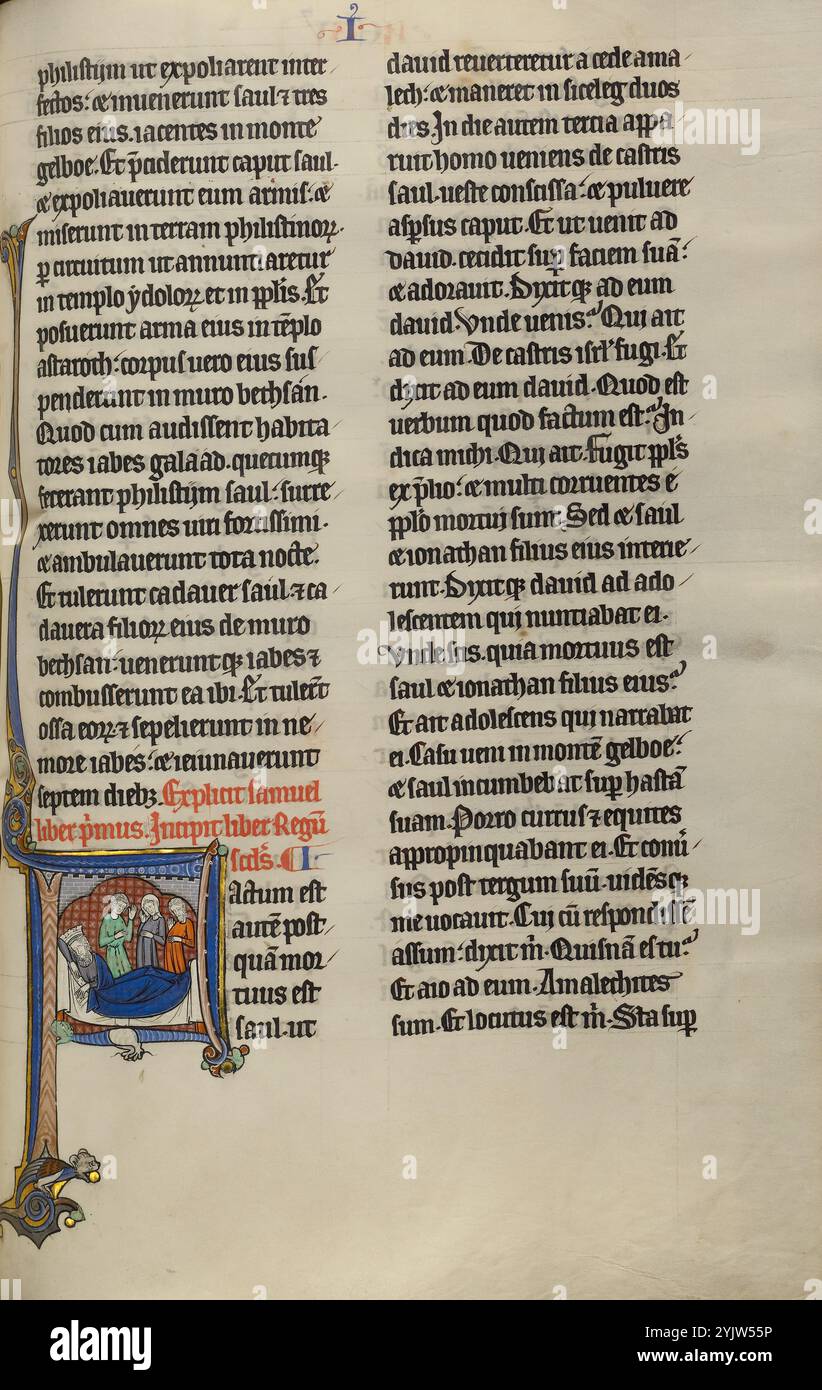 I
philistijm ut expoliarent inter
fectos: et inuenerunt saul ⁊ tres
filios eius. iacentes in monte
gelboe. Et p̃ciderunt caput saul.
et expoliauerunt eum armis: et
miserunt in terram philistinoꝝ.
ꝑ circuitum ut annuntiaretur
in templo ydoloꝝ et in ppl̃is. Et
posuerunt arma eius in tẽplo
astaroth: corpus uero eius sus
penderunt in muro bethsan.
Quod cum audissent habita
tores iabes galaad. quecumqꝫ
fecerant philistijm saul: surre
xerunt omnes uiri fortissimi.
et ambulauerunt tota nocte.
Et tulerunt cadauer saul. ⁊ ca
dauera filioꝝ eius de muro
bethsan: ueneruntqꝫ iabes ⁊
combusserunt ea ibi. Et tulerũt
ossa eoꝝ. ⁊ sepelierunt in ne
more iabes: et ieiunauerunt
septem diebꝫ. Explicit samuel
liber p̃mus. Incipit liber Regũ
scd̃s. C I.
actum est
autẽ post
quã mor
tuus est
saul. ut
dauid reuerteretur a cede ama
lech: et maneret in siceleg duos
dies. In die autem tercia appa
ruit homo ueniens de castris
saul. ueste conscissa: et puluere
asp̃sus caput. Et ut uenit ad
dauid. cecidit suꝑ faciem suã:
et adorauit. Dixitqꝫ ad eum
dauid. Vnde uenis? Qui ait
ad eum. De castris isrl̃ fugi. Et
dixit ad eum dauid. Quod est
uerbum quod factum est? In
dica michi. Qui ait. Fugit ppl̃s
ex p̃lio: et multi corruentes e
ppl̃o mortui sunt. Sed et saul
et ionathan filius eius interie
runt. Dixitqꝫ dauid ad ado
lescentem qui nuntiabat ei.
Vnde scis. quia mortuus est
saul et ionathan filius eius?
Et ait adolescens qui narrabat
ei. Casu ueni in montẽ gelboe:
et saul incumbebat suꝑ hastã
suam. Porro currus ⁊ equites
appropinquabant ei. Et conũ
sus post tergum suũ. uidẽsqꝫ
me uocauit. Cui cũ respondissẽ
assum: dixit m̃. Quisnã es tu?
Et aio ad eum. Amalechites
sum. Et locutus est m̃. Sta suꝑ
alamy
Image ID: 2YJW55P
www.alamy.com